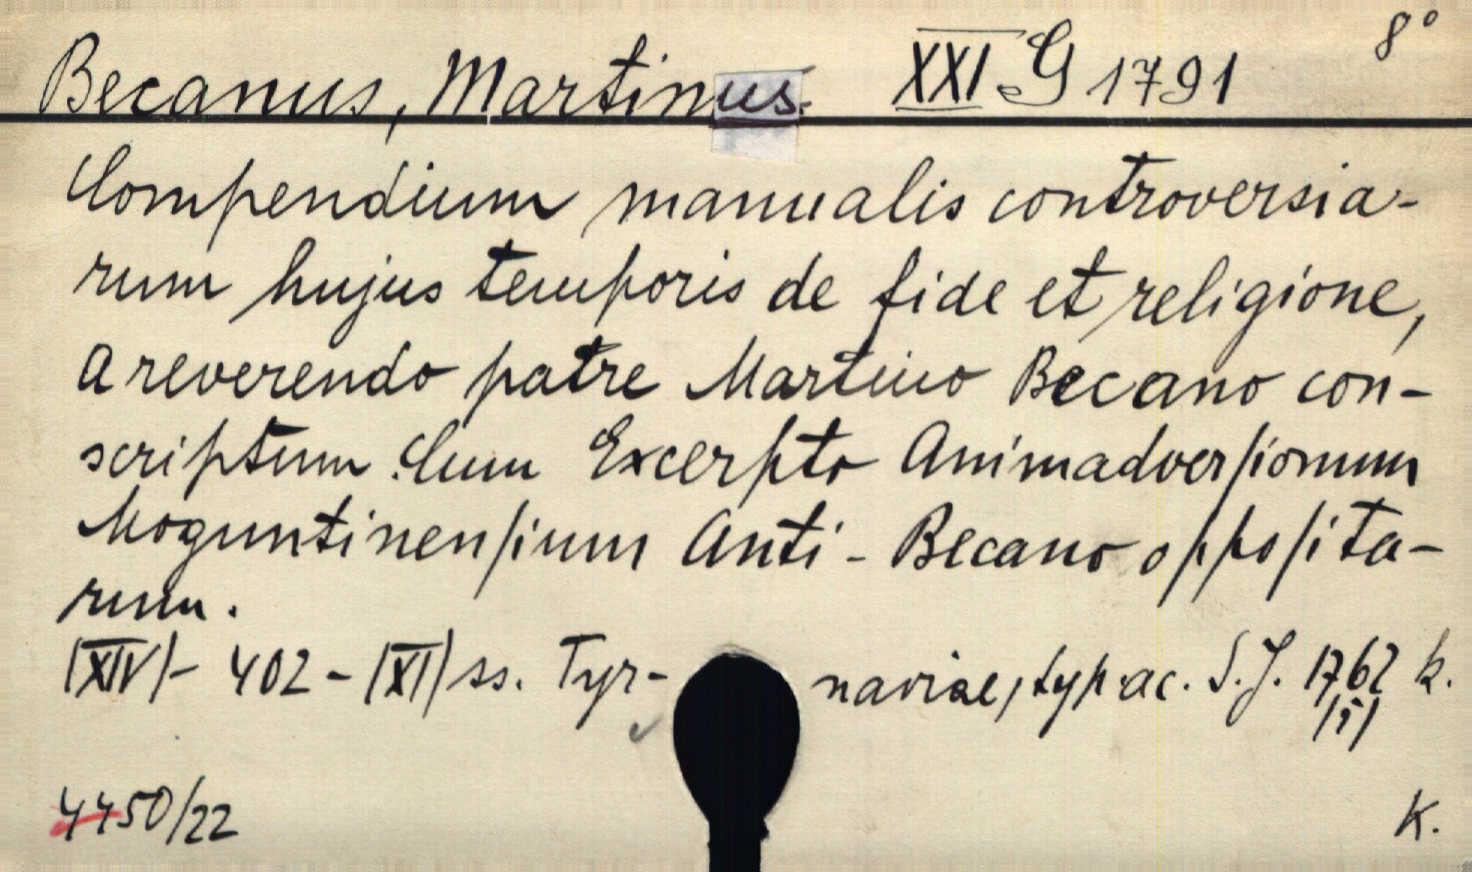 Becanus, Martinus. XXI. G 1791 8°
Compendium manualis controversia-
rum hujus temporis de fide et religione,
a reverendo patre Martino Becano con-
scriptum. Cum Excerpto Animadversionum
Moguntinensium Anti-Becano opposita-
rum.
|XIV|- 402 - |XI| ss. Tyr- naviae, typ. ac. S. J. 1762 k.
|i|
4450/22 K.